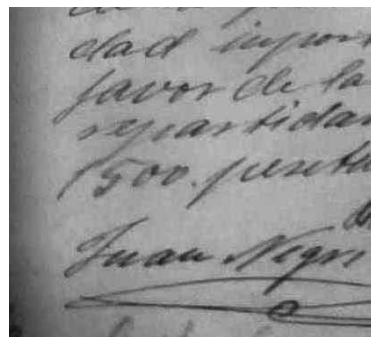 dad impor
favor de la
repartidas
1500. peseta
Juan Negri